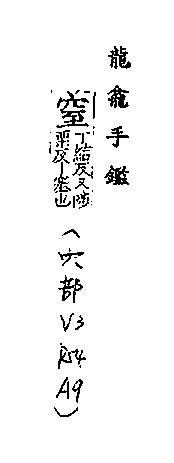 龍龕手鑑
窒
丁結反又陟
栗反丨塞也
(穴部V3
P54
A9)